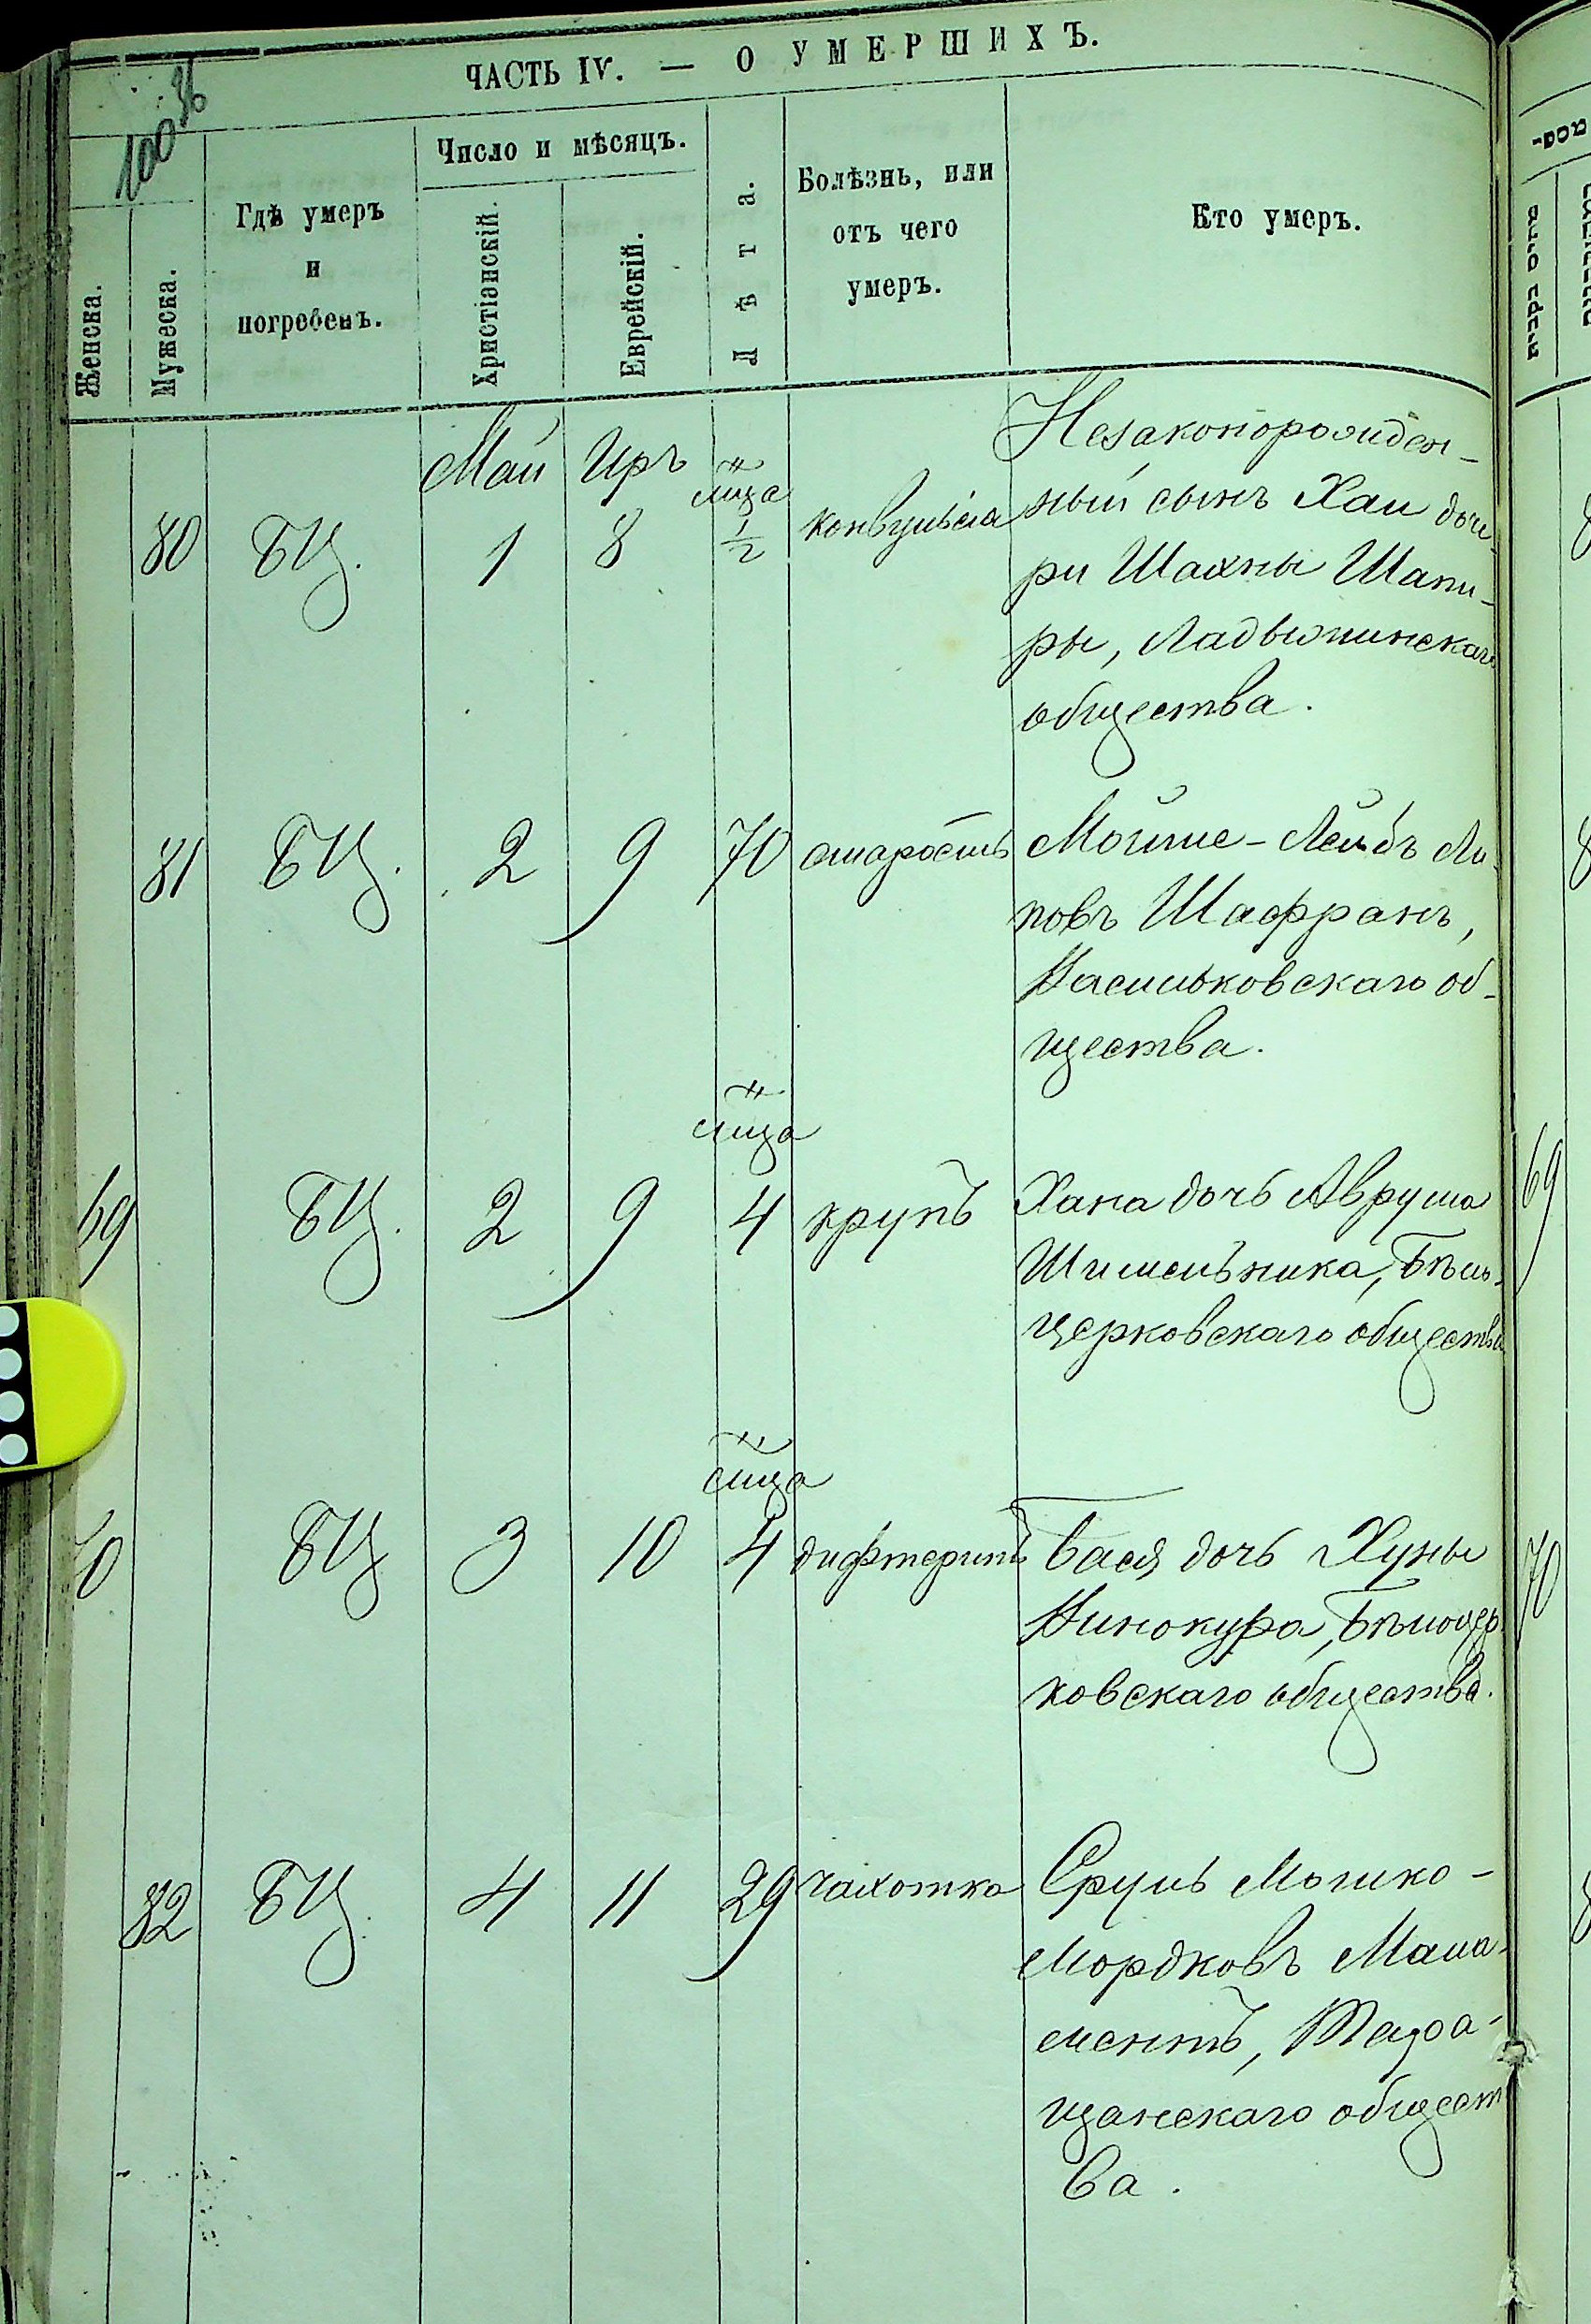 ЧАСТЬ IV. — О УМЕРШИХЪ.
100 36
Женска.
Мужеска.
Гдѣ умеръ
и
погребенъ.
Число и мѣсяцъ.
Христіанскій.
Еврейскій.
Лѣта.
Болѣзнь, или
отъ чего
умеръ.
Кто умеръ.
Май Иръ м-ца
80 БЦ. 1 8 1/2 конвульсіа
Незаконорожден-
ный сынъ Хаи доче-
ри Шахны Шапи-
ры, Ладыжинскаго
общества.
81 БЦ. 2 9 70 старость
Мойше-Лейбъ Ли-
повъ Шафранъ,
Васильковскаго об-
щества.
м-ца
69 БЦ. 2 9 4 крупъ
Хана дочь Аврума
Шмельника, Бѣло-
церковскаго общества
м-ца
70 БЦ 3 10 4 дифтеритъ
Бася дочь Хуны
Винокура, Бѣлоцер-
ковскаго общества.
82 БЦ. 4 11 29 чахотка
Сруль Мошко-
Мордковъ Мала-
ментъ, Тара-
щанскаго общест
ва.
69
70